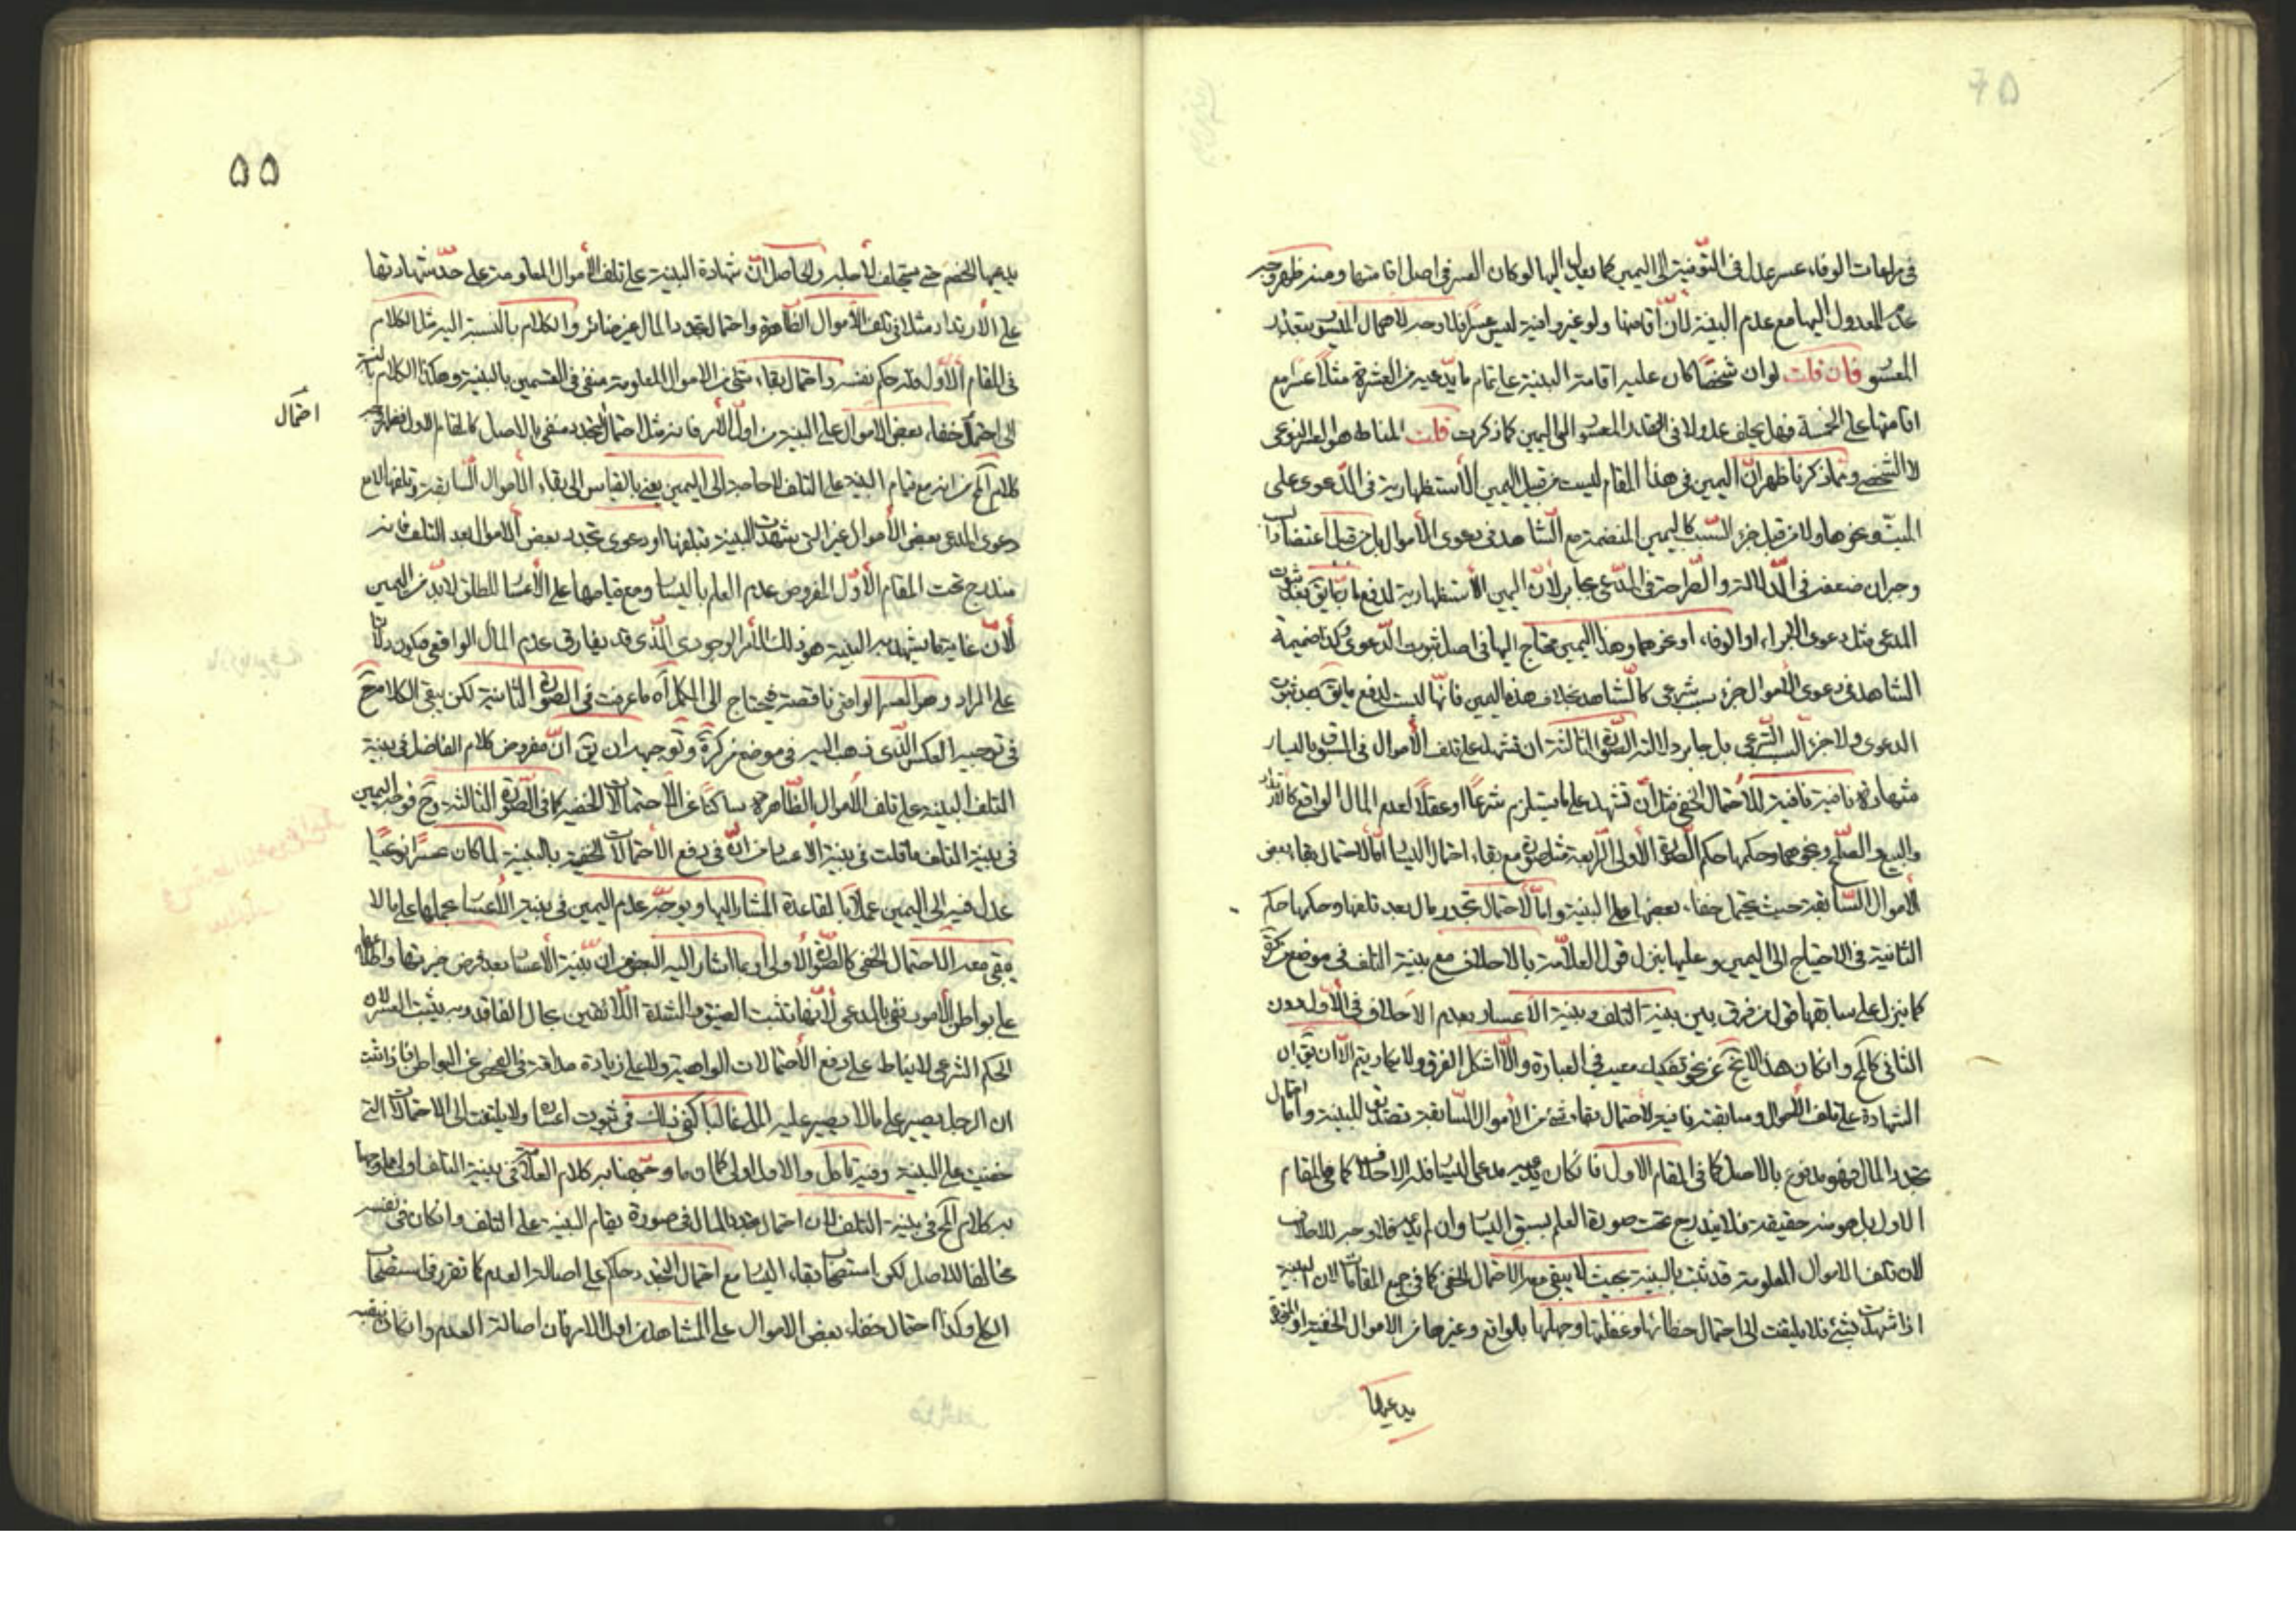 في مراعات الوفاء عسر عدل في التوفية الى اليمين كما يعدل اليها لو كان العسر في اصل اقامتها ومنه ظهر وجه
عدم العدول اليها مع عدم البينة لان اقامتها ولو غير وافية ليس عسرا فلا وجه لاهمال الميسور بتعذر
المعسور فان قلت لو ان شخصا كان عليه اقامة البينة على تمام ما يدعيه من العشرة مثلا عسر مع
اقامتها على الخمسة فهل يحلف عدولا في القدر المعسور الى اليمين كما ذكرت قلت المناط هو العسر النوعى
لا الشخصي ومما ذكرنا ظهر ان اليمين في هذا المقام ليست من قبيل اليمين الاستظهارية في الدعوى على
الميت ونحوها ولا من قبيل جزء السبب كاليمين المنضمة مع الشاهد في دعوى الاموال بل من قبيل اعتضاد
وجبران ضعف في الدلالة والصراحة في المدعى بجابر لان اليمين الاستظهارية لدفع ما يق بعد ثبوت
المدعى مثل دعوى الابراء او الوفاء او نحوهما وهذا اليمين محتاج اليها في اصل ثبوت الدعوى وكذا ضميمة
الشاهد في دعوى الاموال جزء سبب شرعى كالشاهد بخلاف هذه اليمين فانها ليست لدفع ما يق بعد ثبوت
الدعوى ولا جزء السبب الشرعي بل جابر دلالته الصورة الثالثة ان تشهد على تلف الاموال في المسبوق باليسار
شهادة نافية للاحتمال الخفي مثل ان تشهد على ما يستلزم شرعا او عقلا لعدم المال الواقع كالارتداد
والبيع والصلح ونحوهما وحكمها حكم الصورة الاولى الرابعة مثل صورة مع بقاء احتمال اليسار اما لاحتمال بقاء بعض
الاموال السابقة حيث يحتمل خفاء بعضها على البينة واما لاحتمال تجدد مال بعد تلفها وحكمها حكم
الثانية في الاحتياج الى اليمين وعليها ينزل قول العلامة بالاحلاف مع بينة التلف في موضع من كرة
كما ينزل على سابقها قول من فرق بين بينة التلف وبينة الاعسار بعدم الاحلاف في الاول دون
الثاني كالمح وان كان هذا لا يخ عن نحو تفكيك معيب في العبارة والا اشكل الفرق ولا يكاد يتم الا ان يق ان
الشهادة على تلف الاموال وسابقته فانية لاحتمال بقاء شئ من الاموال السابقة تصديق للبينة واما احتمال
تجدد المال فهو مدفوع بالاصل كما في المقام الاول فان كان يدعيه مدعي اليسار فله الاحلاف كما في المقام
الاول بل هو منه حقيقة فلا يندرج تحت صورة العلم بسبق اليسار وان لم يدعه فلا وجه للاحلاف
لان تلف الاموال المعلومة قد ثبت بالبينة بحيث لا يبقى معه الاحتمال الخفي كما في جميع المقامات لان البينة
اذا شهدت بشئ فلا يلتفت الى احتمال خطائها وغفلتها وجهلها بالواقع وغيرها من الاموال الخفية او المتجددة
يدعيها
۵۵
يدعيها الخصم حتى يحلف لاجلها والحاصل ان شهادة البينة على تلف الاموال المعلومة على حد شهادتها
على الارتداد مثلا في تلف الاموال الظاهرة واحتمال تجدد المال غير ضائر والكلام بالنسبة اليه مثل الكلام
في المقام الاول فله حكم نفسه واحتمال بقاء شئ من الاموال المعلومة منفى في القسمين بالبينة وهكذا الكلام بالنسبة
الى احتمال خفاء بعض الاموال على البينة من اول الامر فانه مثل احتمال التجدد منفى بالاصل كالمقام الاول فظهر وجه
كلام المح من انه مع قيام البينة على التلف لا حاجة الى اليمين يعنى بالقياس الى بقاء الاموال السابقة وتلفها لا مع
دعوى المدعى بعض الاموال غير التي شهدت البينة بتلفها او دعوى تجدد بعض الاموال بعد التلف فانه
مندرج تحت المقام الاول المفروض عدم العلم باليسار ومع قيامها على الاعسار المطلق لابد من اليمين
لان غاية ما يشهد به البينة هو ذلك الامر الوجودى الذي قد يفارق عدم المال الواقعى فيكون دلالتها
على المراد وهو العسر الواقعى ناقصة فيحتاج الى المكمل كما عرفت في الصورة الثانية لكن يبقى الكلام ح
في توجيه العكس الذي ذهب اليه في موضع من كرة وتوجيهه ان يق ان مفروض كلام الفاضل في بينة
التلف البينة على تلف الاموال الظاهرة ساكتا عن الاحتمالات الخفية كما في الصورة الثالثة وح فوجه اليمين
في بينة التلف ما قلت في بينة الاعسار من انه في دفع الاحتمالات الخفية بالبينة لما كان عسرا نوعيا
عدل فيه الى اليمين عملا بالقاعدة المشار اليها ويوجه عدم اليمين في بينة الاعسار بحملها على ما لا
يبقى معه الاحتمال الخفي كالصورة الاولى او بما اشار اليه البعض من ان بينة الاعسار بعد فرض خبرتها واطلاعها
على بواطن الامور تفي بالمدعى لانها تثبت الضيق والشدة اللائقين بحال الفاقد وبه يثبت العسر لان
الحكم الشرعى لا يناط على دفع الاحتمالات الواهية ولا على زيادة مداقة في الفحص عن البواطن فاذا ثبت
ان الرجل يصبر على ما لا يصبر عليه الملى غالبا كفى ذلك في ثبوت اعساره ولا يلتفت الى الاحتمالات التي
خفيت على البينة وفيه تامل والاول اولى كما ان ما وجهنا به كلام العلامة في بينة التلف اولى مما وجهنا
به كلام المح في بينة التلف لان احتمال تجدد المال في صورة قيام البينة على التلف وان كان في نفسه
مخالفا للاصل لكن استصحاب بقاء اليسار مع احتمال التجدد حاكم على اصالة العدم كما تقرر في استصحاب
الكلى وكذا احتمال خفاء بعض الاموال على المشاهد من اول الامر فان اصالة العدم وان كان تنفيه
احتمال